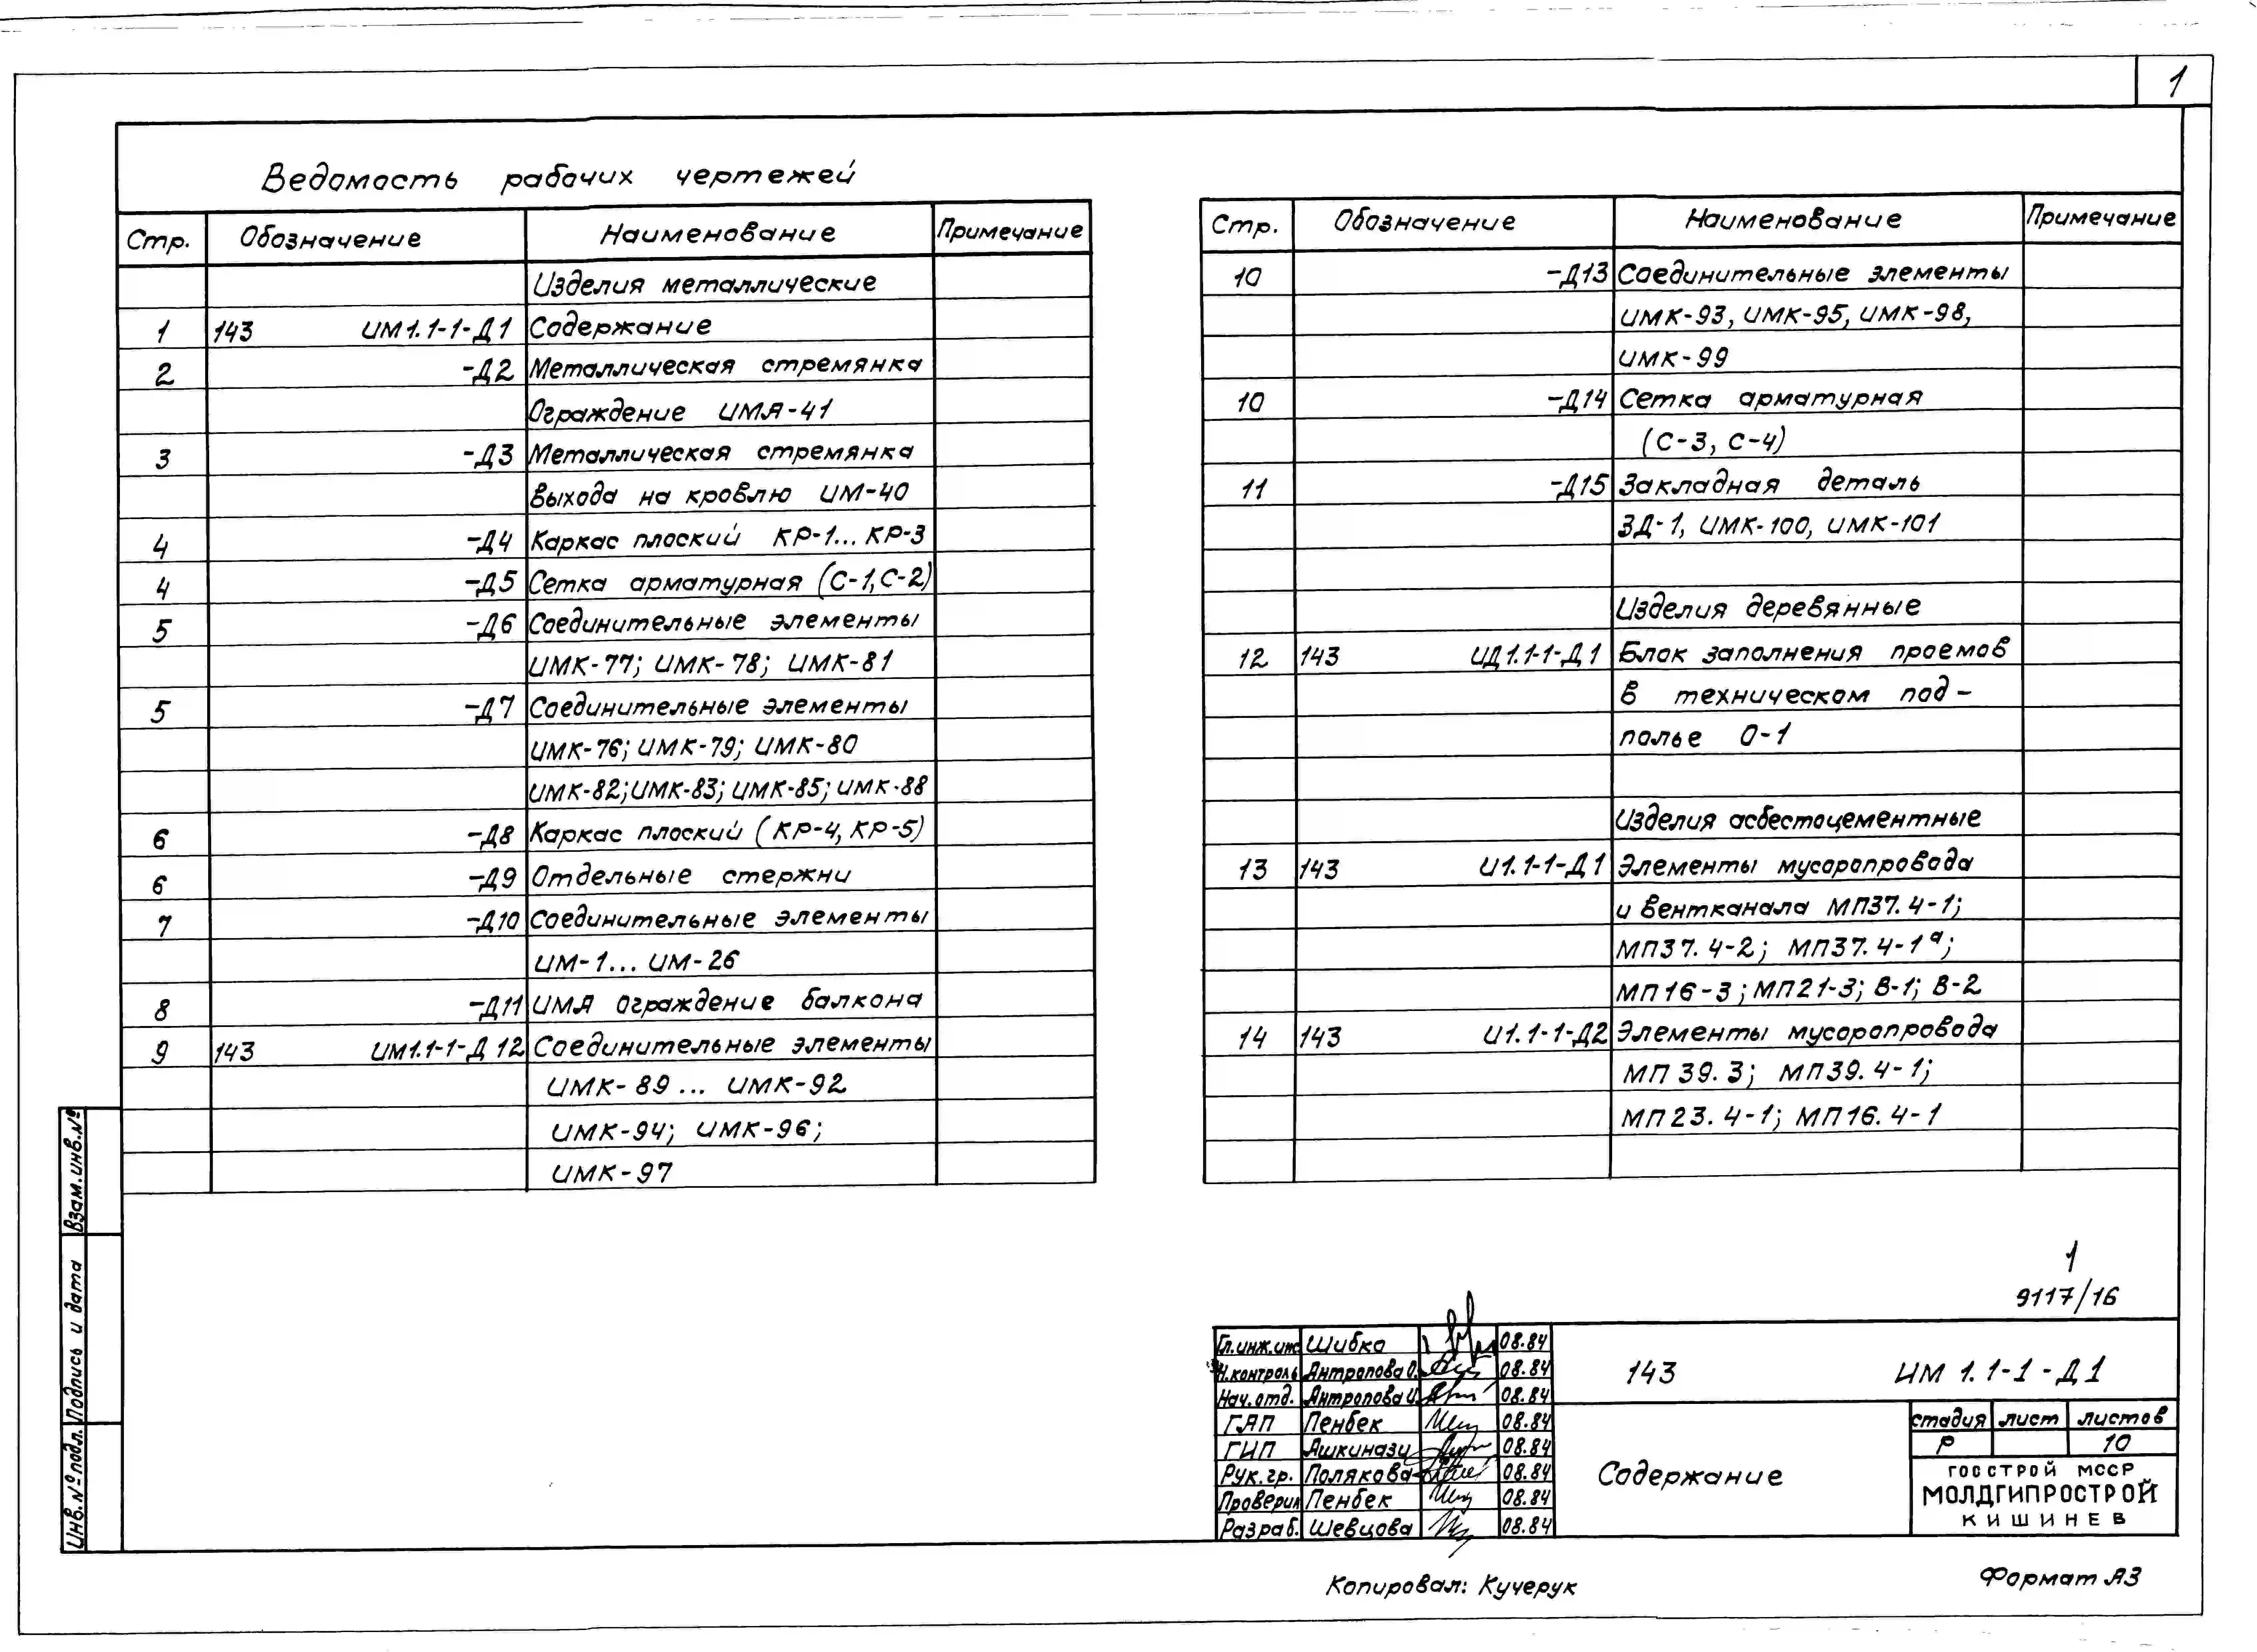 1
Ведомость рабочих чертежей
Стр. Обозначение Наименование Примечание
Изделия металлические
1 143 ИМ1.1-1-Д1 Содержание
2 -Д2 Металлическая стремянка
Ограждение ИМЯ-41
3 -Д3 Металлическая стремянка
выхода на кровлю ИМ-40
4 -Д4 Каркас плоский КР-1... КР-3
4 -Д5 Сетка арматурная (С-1, С-2)
5 -Д6 Соединительные элементы
ИМК-77; ИМК-78; ИМК-81
5 -Д7 Соединительные элементы
ИМК-76; ИМК-79; ИМК-80
ИМК-82; ИМК-83; ИМК-85; ИМК-88
6 -Д8 Каркас плоский (КР-4, КР-5)
6 -Д9 Отдельные стержни
7 -Д10 Соединительные элементы
ИМ-1... ИМ-26
8 -Д11 ИМЯ ограждение балкона
9 143 ИМ1.1-1-Д12 Соединительные элементы
ИМК-89... ИМК-92
ИМК-94; ИМК-96;
ИМК-97
Стр. Обозначение Наименование Примечание
10 -Д13 Соединительные элементы
ИМК-93, ИМК-95, ИМК-98,
ИМК-99
10 -Д14 Сетка арматурная
(С-3, С-4)
11 -Д15 Закладная деталь
ЗД-1, ИМК-100, ИМК-101
Изделия деревянные
12 143 ИД1.1-1-Д1 Блок заполнения проемов
в техническом под-
полье О-1
Изделия асбестоцементные
13 143 И1.1-1-Д1 Элементы мусоропровода
и вентканала МП37.4-1;
МП37.4-2; МП37.4-1ᵃ;
МП16-3; МП21-3; В-1; В-2
14 143 И1.1-1-Д2 Элементы мусоропровода
МП39.3; МП39.4-1;
МП23.4-1; МП16.4-1
Взам.инв.№
Подпись и дата
Инв.№подл.
1
9117/16
Гл.инж.ин. Шибка 08.84
Н.контроль Антропова О. 08.84
Нач.отд. Антропова И. 08.84
ГАП Пенбек 08.84
ГИП Ашкинази 08.84
Рук.гр. Полякова 08.84
Проверил Пенбек 08.84
Разраб. Шевцова 08.84
143 ИМ 1.1-1-Д1
Содержание
стадия лист листов
Р 10
ГОССТРОЙ МССР
МОЛДГИПРОСТРОЙ
КИШИНЕВ
Копировал: Кучерук
Формат А3